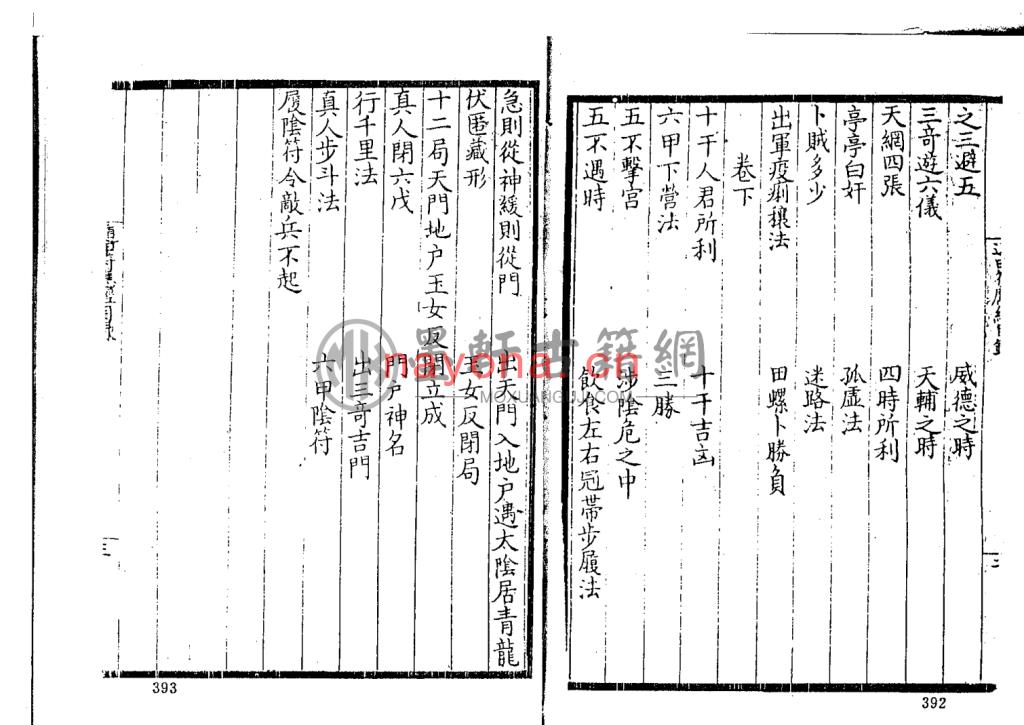 之三避五　威德之時
三竒遊六儀　天輔之時
天網四張　四時所利
亭亭白奸　孤虛法
卜賊多少　迷路法
出軍疫痢禳法　田螺卜勝負
卷下
十干人君所利　十干吉凶
六甲下營法　三勝
五不擊宮　涉陰危之中
五不遇時　飲食左右冠帶步履法
392
急則從神緩則從門　出天門入地户遇太陰居青龍
伏匿藏形　玉女反閉局
十二局天門地户玉女反閉立成
真人閉六戊　門户神名
行千里法　出三竒吉門
真人步斗法　六甲陰符
履陰符令敵兵不起
三
393
墨軒古籍網
nayona.cn